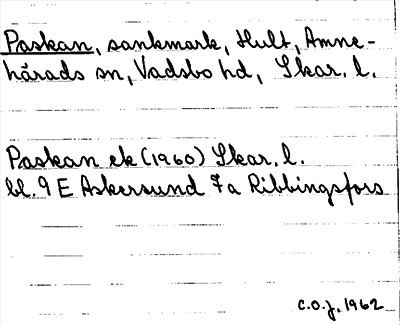 Paskan, sankmark, Hult, Amne-
härads sn, Vadsbo hd, Skar. l.
Paskan ek (1960) Skar. l.
bl. 9 E Askersund 7a Ribbingsfors
C.O.J. 1962